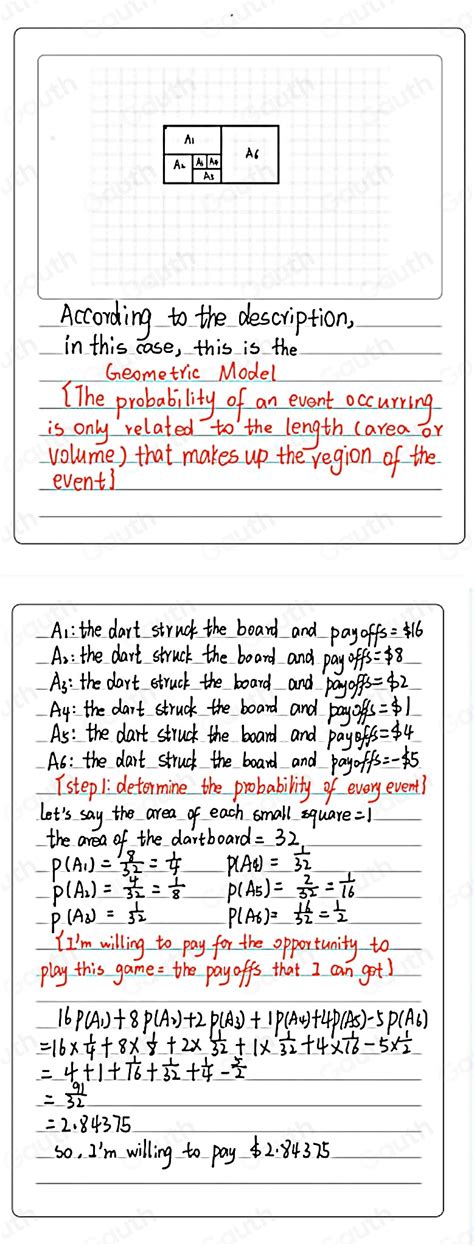 A1
A6
A2
A3
A4
A5
According to the description,
in this case, this is the
Geometric Model
{The probability of an event occurring
is only related to the length (area or
volume) that makes up the region of the
event}
A1: the dart struck the board and payoffs = $16
A2: the dart struck the board and payoffs = $8
A3: the dart struck the board and payoffs = $2
A4: the dart struck the board and payoffs = $1
A5: the dart struck the board and payoffs = $4
A6: the dart struck the board and payoffs = -$5
{step 1: determine the probability of every event}
Let's say the area of each small square = 1
the area of the dartboard = 32
P(A1) = 8/32 = 1/4 P(A4) = 1/32
P(A2) = 4/32 = 1/8 P(A5) = 2/32 = 1/16
P(A3) = 1/32 P(A6) = 16/32 = 1/2
{I'm willing to pay for the opportunity to
play this game = the payoffs that I can get}
16P(A1) + 8P(A2) + 2P(A3) + 1P(A4) + 4P(A5) - 5P(A6)
= 16 × 1/4 + 8 × 1/8 + 2 × 1/32 + 1 × 1/32 + 4 × 1/16 - 5 × 1/2
= 4 + 1 + 1/16 + 1/32 + 1/4 - 5/2
= 91/32
= 2.84375
so, I'm willing to pay $2.84375